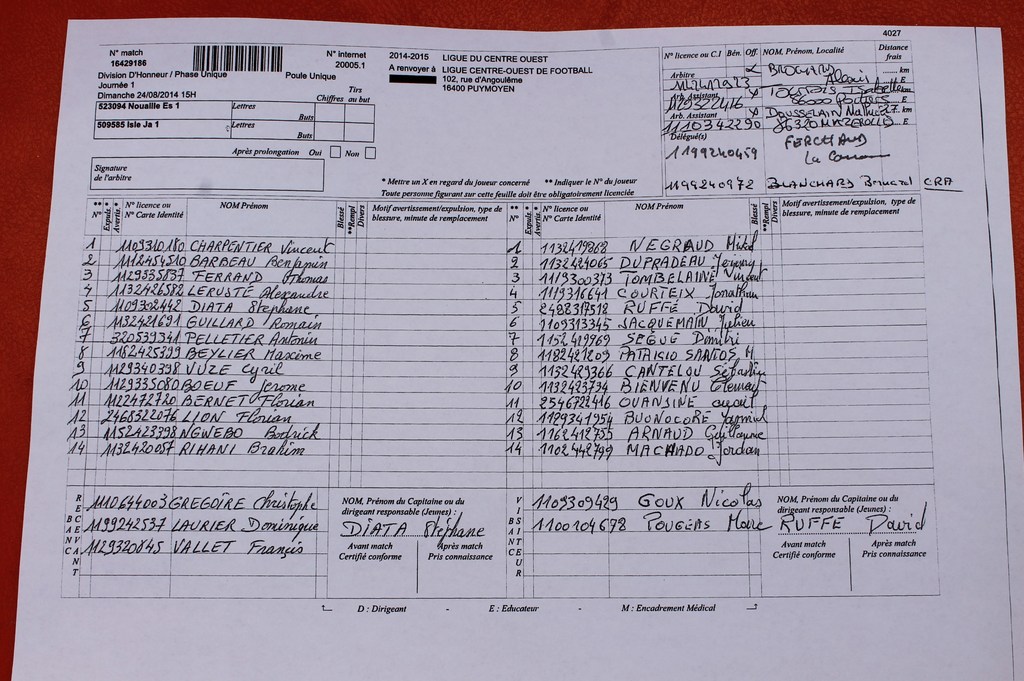 4027
N° match
16429186
N° internet
20005.1
2014-2015 LIGUE DU CENTRE OUEST
A renvoyer à LIGUE CENTRE-OUEST DE FOOTBALL
102, rue d'Angoulême
16400 PUYMOYEN
Division D'Honneur / Phase Unique Poule Unique
Journée 1
Dimanche 24/08/2014 15H
Chiffres Tirs au but
523094 Nouaille Es 1 Lettres
Buts
509585 Isle Ja 1 Lettres
Buts
Après prolongation Oui Non
Signature
de l'arbitre
* Mettre un X en regard du joueur concerné ** Indiquer le N° du joueur
Toute personne figurant sur cette feuille doit être obligatoirement licenciée
N° licence ou C.I Bén. Off. NOM, Prénom, Localité Distance frais
Arbitre BROGHARD Alexis km
E
Arb. Assistant Isabelle km
86000 POITIERS E
Arb. Assistant DOUSSELAIN 27 km
1110342290 86320 MAZEROLLES E
Délégué(s) FERCHAUD
1199240459
1199240972 BLANCHARD Bernard CRA
** N° Expuls. * Avertis. * N° licence ou N° Carte Identité NOM Prénom Blessé **Rempl Divers Motif avertissement/expulsion, type de blessure, minute de remplacement
1 1109310180 CHARPENTIER Vincent
2 1112454510 BARBEAU Benjamin
3 1129335837 FERRAND Thomas
4 1132426582 LERUSTE Alexandre
5 1109302442 DIATA Stephane
6 1132421691 GUILLARD Romain
7 320539341 PELLETIER Antonin
8 1182425399 BEYLIER Maxime
9 1129340398 VUZE Cyril
10 1129335080 BOEUF Jerome
11 1122472720 BERNET Florian
12 2468522076 LION Florian
13 1152423398 NGWEBO Bodrick
14 1132420057 RIHANI Brahim
** N° Expuls. * Avertis. * N° licence ou N° Carte Identité NOM Prénom Blessé **Rempl Divers Motif avertissement/expulsion, type de blessure, minute de remplacement
1 1132419868 NEGRAUD
2 1132424065 DUPRADEAU Jeremy
3 1119300373 TOMBELAINE Vincent
4 1119316641 COURTEIX Jonathan
5 2488317518 RUFFE David
6 1109313345 JACQUEMAIN Julien
7 1152419969 SEGUE Dimitri
8 1182421209 PATRICIO SANTOS H
9 1132429366 CANTELOU Sébastien
10 1132423734 BIENVENU Clement
11 2546722416 OUANSINE
12 1129341954 BUONOCORE
13 1162412755 ARNAUD Guillaume
14 1102442799 MACHADO Jordan
RECEVANT
BANC
1110644003 GREGOIRE Christophe
1199242537 LAURIER Dominique
1129320845 VALLET Francis
NOM, Prénom du Capitaine ou du
dirigeant responsable (Jeunes) :
DIATA Stephane
Avant match Après match
Certifié conforme Pris connaissance
VISITEUR
BANC
1109309429 GOUX Nicolas
1100104678 POUGEAS Marc
NOM, Prénom du Capitaine ou du
dirigeant responsable (Jeunes) :
RUFFE David
Avant match Après match
Certifié conforme Pris connaissance
D : Dirigeant - E : Educateur - M : Encadrement Médical